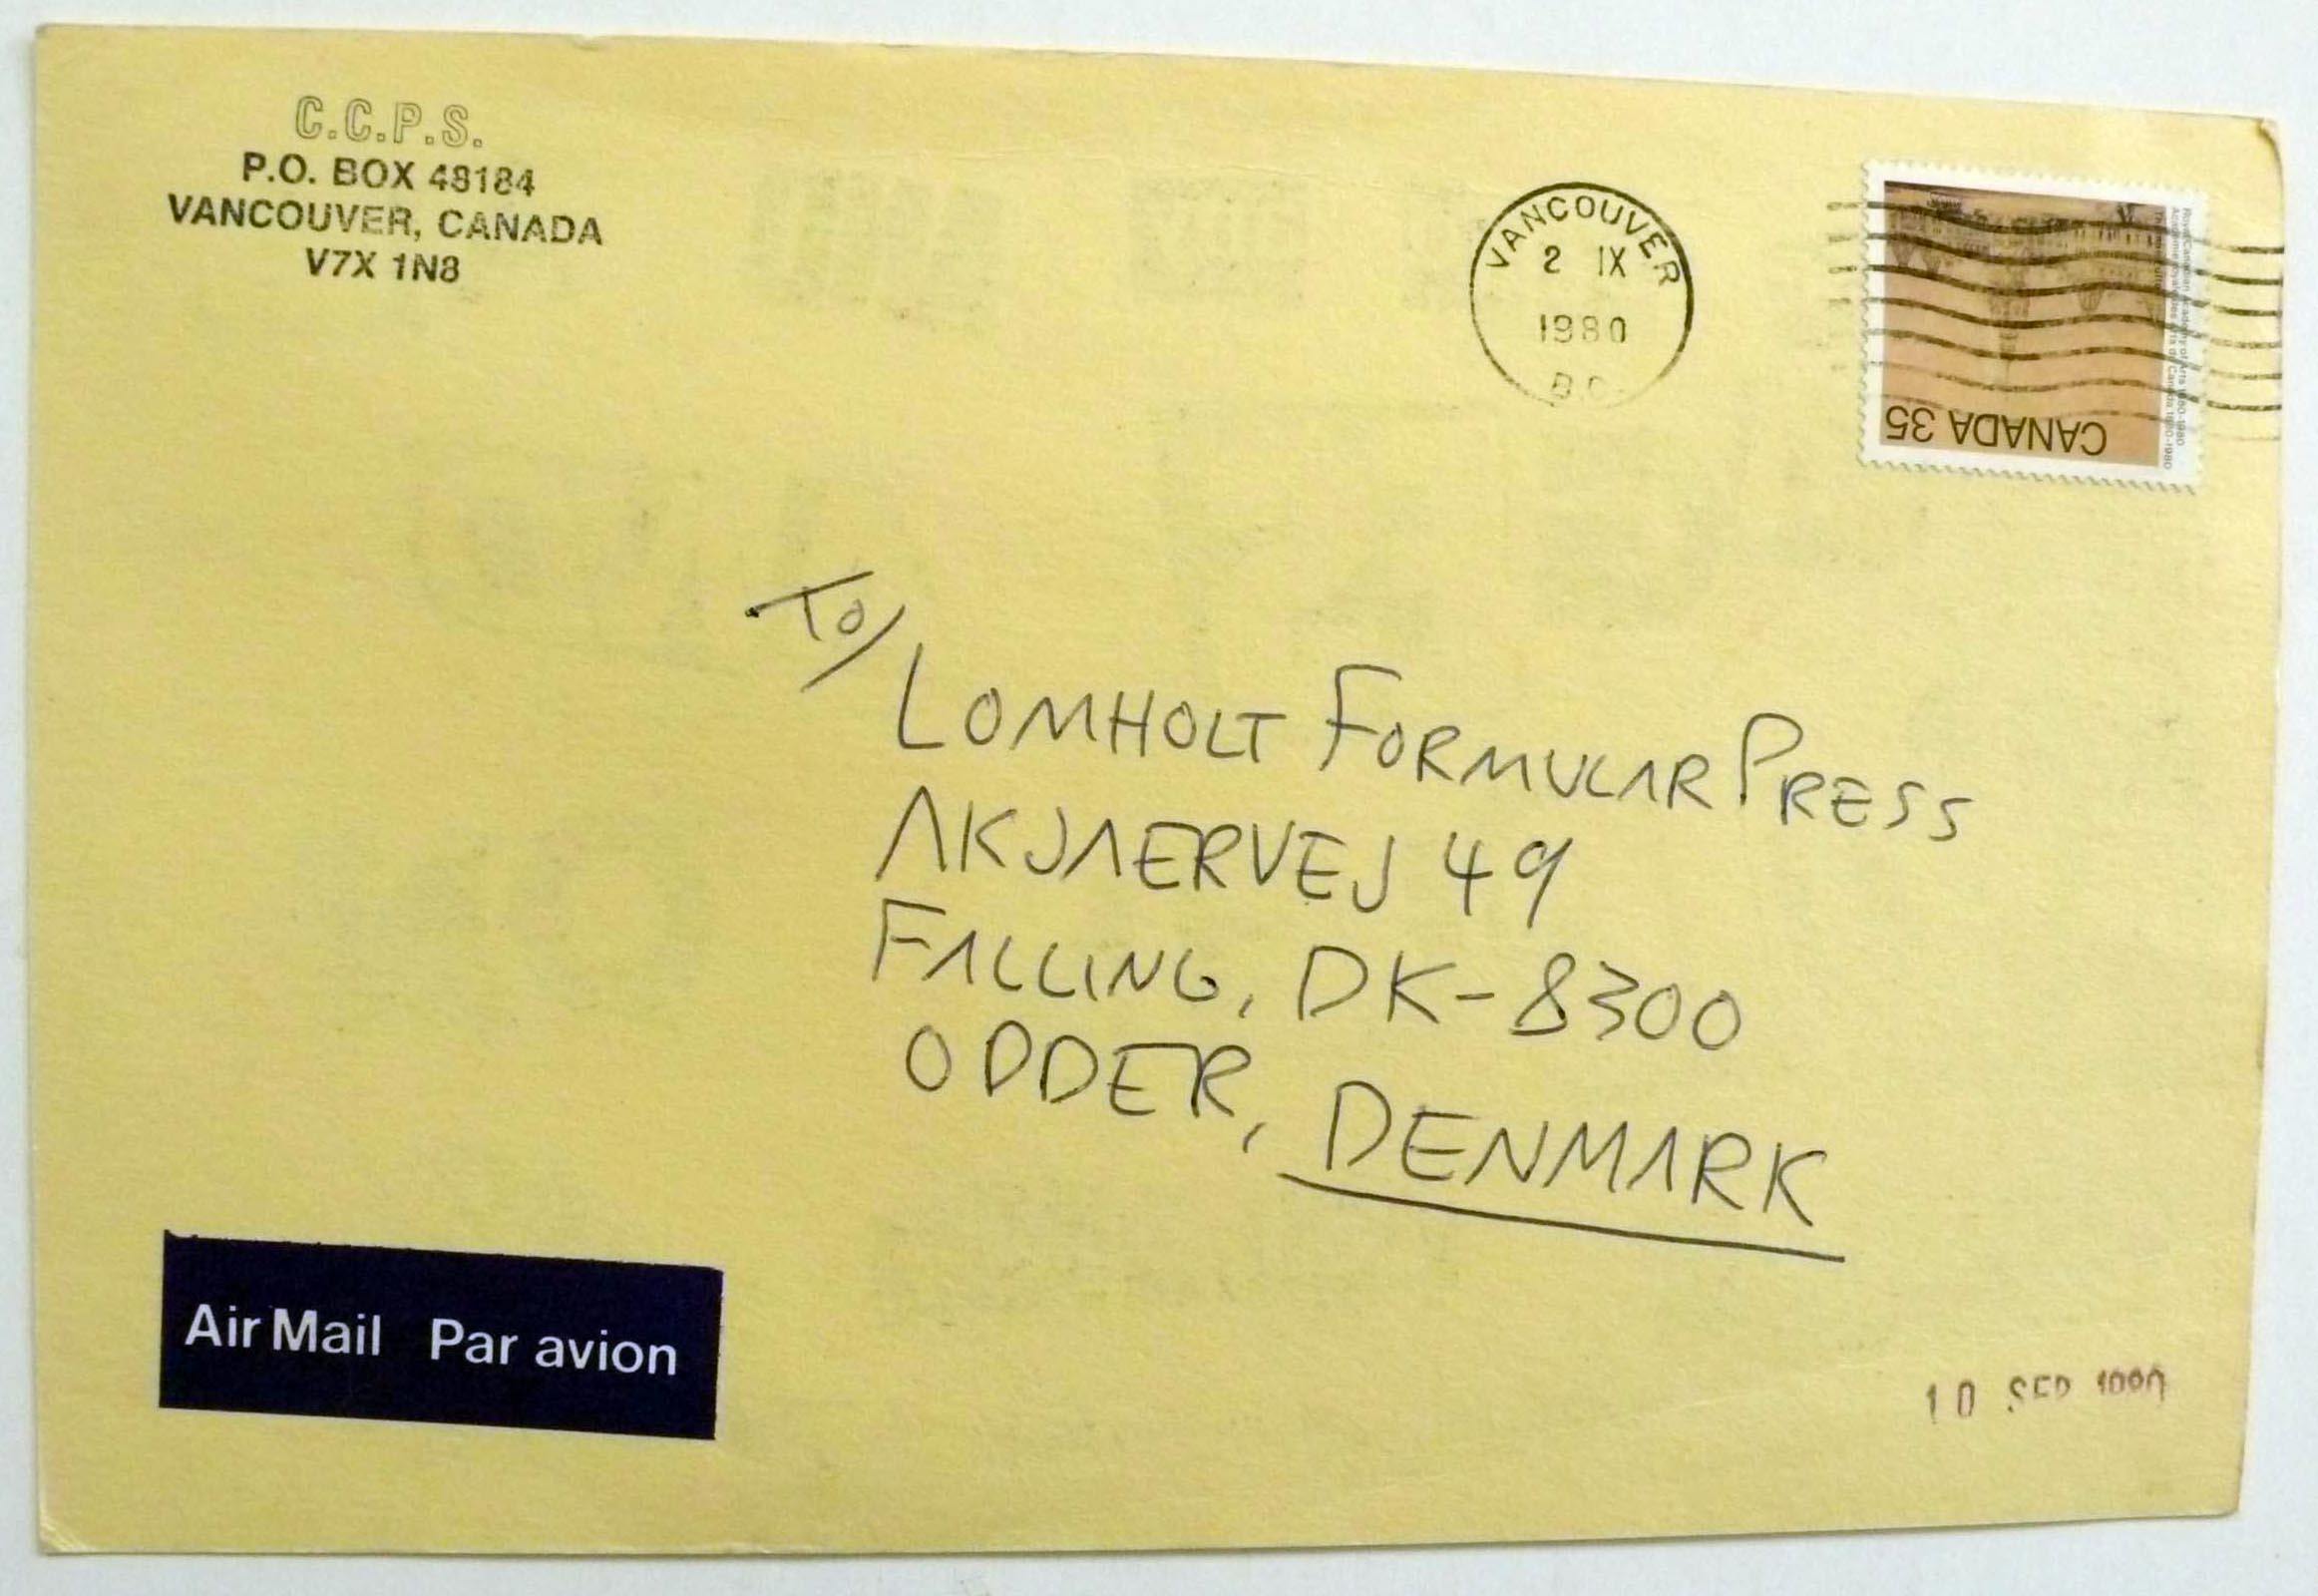 C.C.P.S.
P.O. BOX 48184
VANCOUVER, CANADA
V7X 1N8
VANCOUVER
2 IX
1980
B.C.
CANADA 35
To/
LOMHOLT FORMULAR PRESS
AKJAERVEJ 49
FALLING, DK-8300
ODDER, DENMARK
Air Mail Par avion
10 SEP 1980